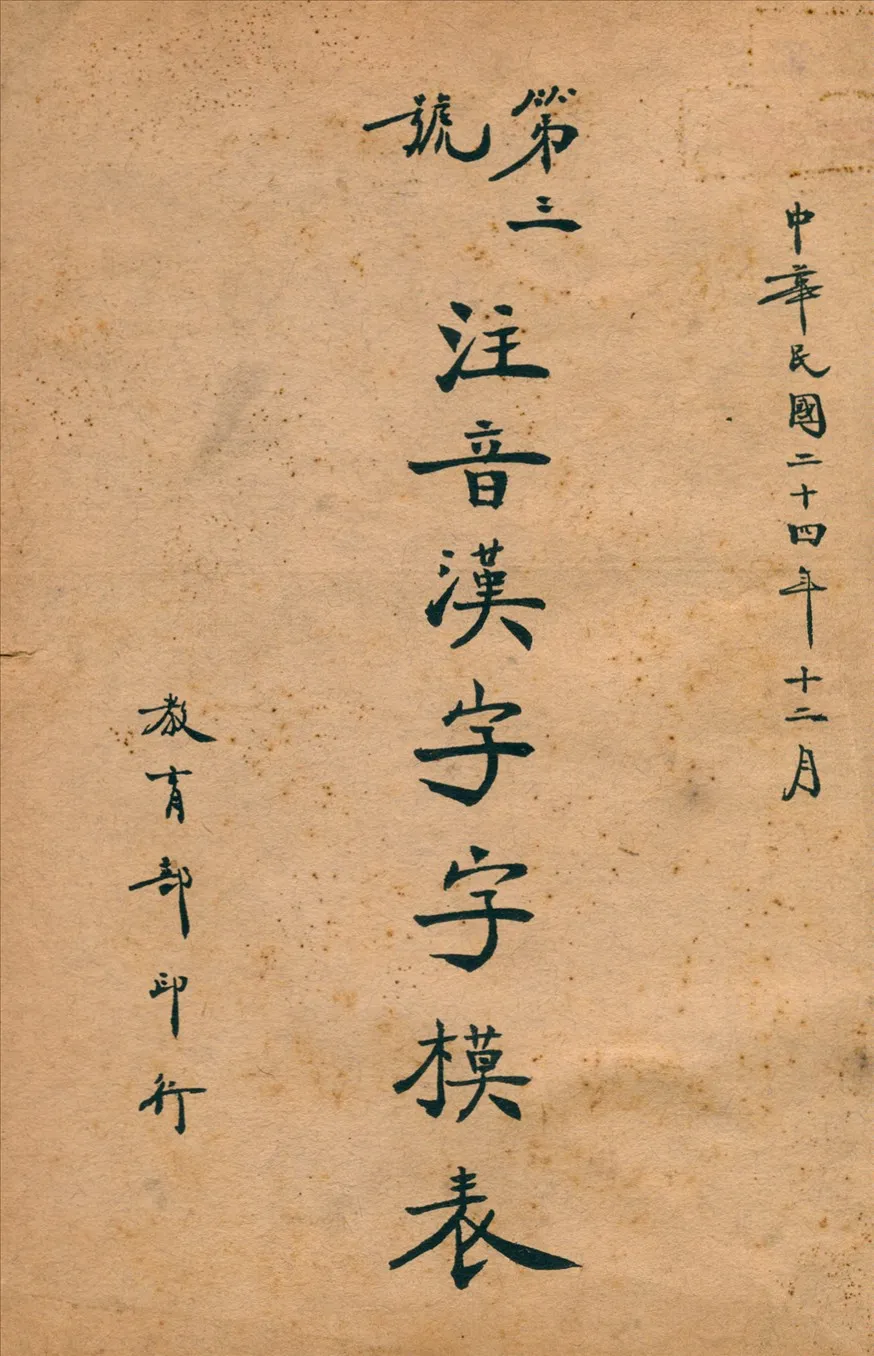 中華民國二十四年十二月
第三號
注音漢字字模表
教育部印行